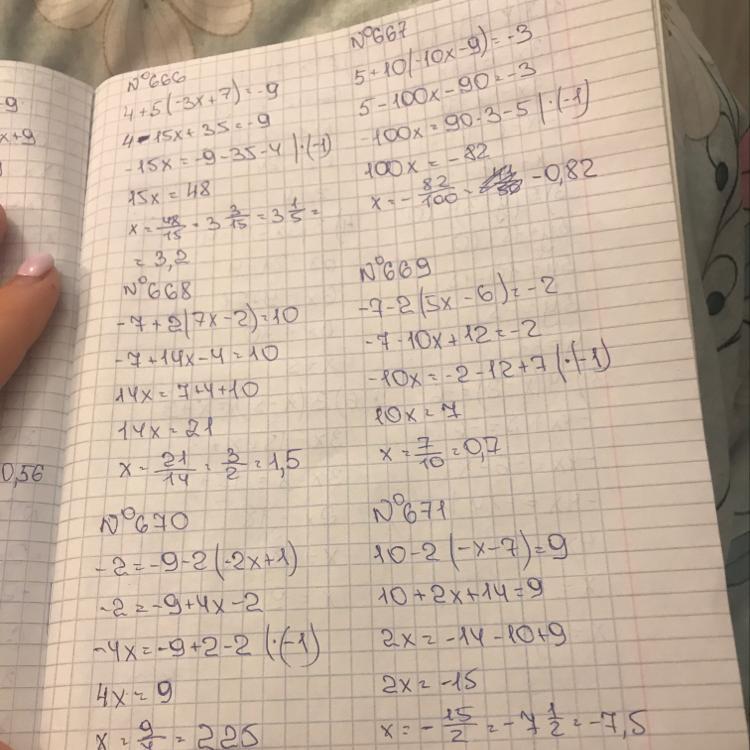 -9
x+9
0,56
N°666
4+5(-3x+7)=-9
4-15x+35=-9
-15x=-9-35-4 |·(-1)
15x=48
x=48/15=3 3/15=3 1/5=
=3,2
N°667
5+10(-10x-9)=-3
5-100x-90=-3
-100x=90-3-5 |·(-1)
100x=-82
x=-82/100= -0,82
N°668
-7+2(7x-2)=10
-7+14x-4=10
14x=7+4+10
14x=21
x=21/14=3/2=1,5
N°669
-7-2(5x-6)=-2
-7-10x+12=-2
-10x=-2-12+7 |·(-1)
10x=7
x=7/10=0,7
N°670
-2=-9-2(-2x+1)
-2=-9+4x-2
-4x=-9+2-2 |·(-1)
4x=9
x=9/4=225
N°671
10-2(-x-7)=9
10+2x+14=9
2x=-14-10+9
2x=-15
x=-15/2=-7 1/2=-7,5